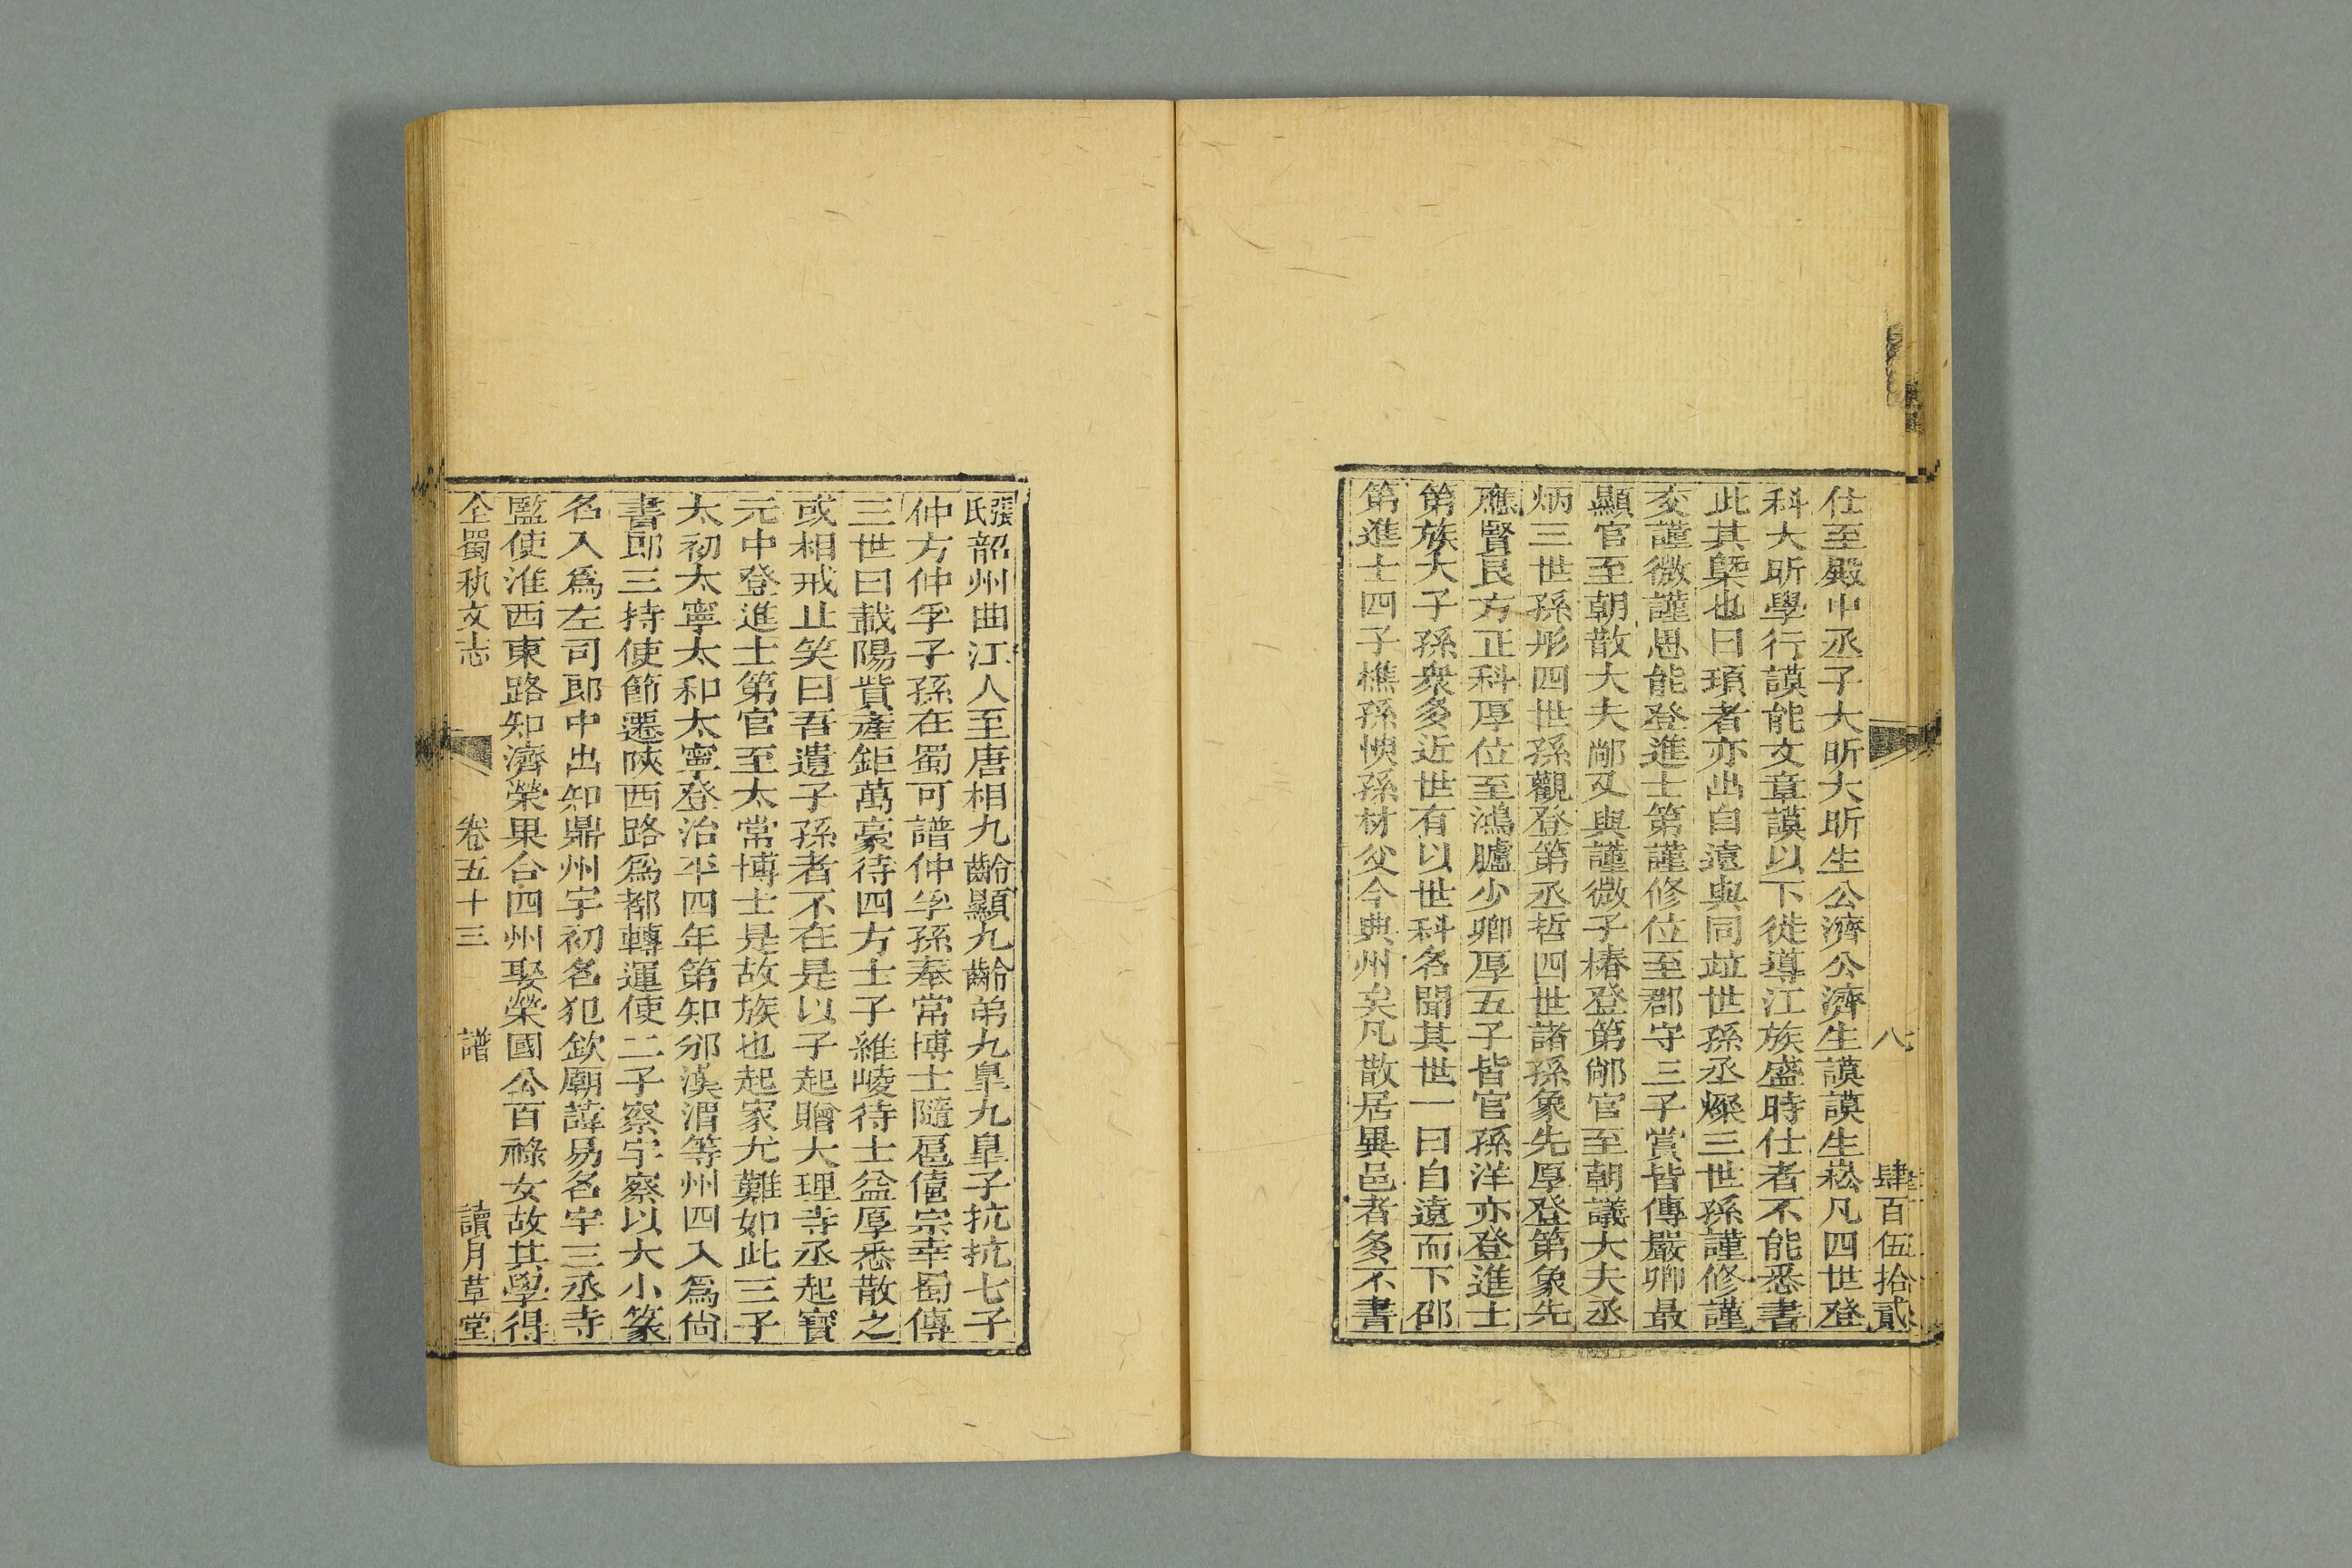 八 肆百伍拾貳
仕至殿中丞子大昕大昕生公濟公濟生謨謨生崧凡四世登
科大昕學行謨能文章謨以下徙導江族盛時仕者不能悉書
此其槩也曰頊者亦出自遠與同竝世孫丞燦三世孫謹修謹
交謹微謹思能登進士第謹修位至郡守三子賞皆傳嚴卿最
顯官至朝散大夫鄗又與謹微子椿登第鄗官至朝議大夫丞
炳三世孫彤四世孫觀登第丞哲四世諸孫象先厚登第象先
應賢良方正科厚位至鴻臚少卿厚五子皆官孫洋亦登進士
第族大子孫衆多近世有以世科名聞其世一曰自遠而下邵
第進士四子樵孫愰孫材父今典州矣凡散居異邑者多不書
張氏韶州曲江人至唐相九齡顯九齡弟九臯九臯子抗抗七子
仲方仲孚子孫在蜀可譜仲孚孫奉常博士隨扈僖宗幸蜀傳
三世曰載陽貲產鉅萬豪待四方士子維㥄待士益厚悉散之
或相戒止笑曰吾遺子孫者不在是以子起贈大理寺丞起寳
元中登進士第官至太常博士是故族也起家尤難如此三子
太初太寧太和太寧登治平四年第知邠漢渭等州四入爲尚
書郎三持使節遷陝西路爲都轉運使二子察宇察以大小篆
名入爲左司郎中出知鼎州宇初名犯欽廟諱易名宇三丞寺
監使淮西東路知濟榮果合四州娶榮國公百祿女故其學得
全蜀秇文志 卷五十三 譜 讀月草堂